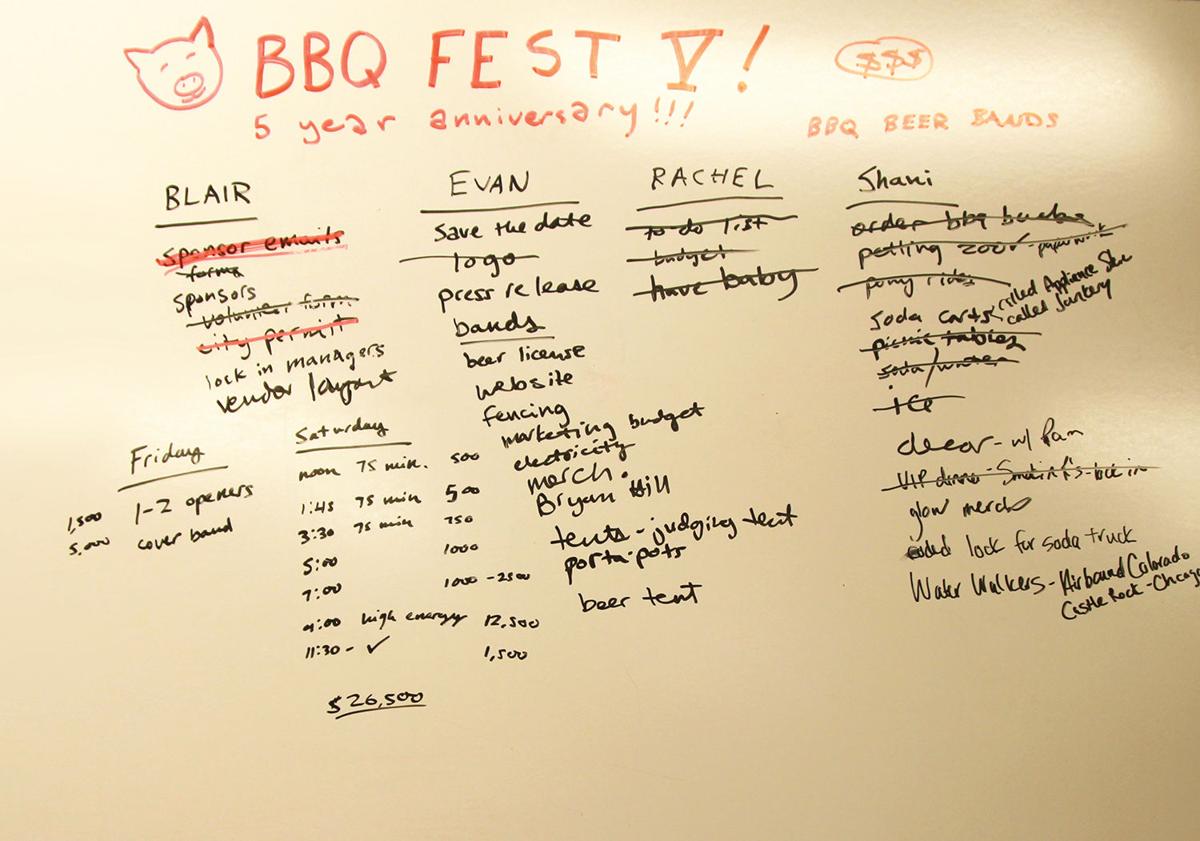 BBQ FEST V!
$$$
5 year anniversary!!!
BBQ BEER BANDS
BLAIR
sponsor emails
forms
sponsors
volunteer form
city permit
lock in managers
vendor layout
EVAN
save the date
logo
press release
bands
beer license
website
fencing
marketing budget
electricity
merch.
Bryan Hill
tents - judging tent
porta-pots
beer tent
RACHEL
to do list
budget
have baby
Shani
order bbq bucks
petting zoo ✓ - paperwork
pony rides
soda carts
called Appliance Store
called Santery
picnic tables
soda/water
ice
decor - w/ Pam
VIP dinner - Smokin J's - lock in
glow merch
lock for soda truck
Water Walkers - Airbound Colorado
Castle Rock - Chicago
Friday
1,500 1-2 openers
5,000 cover band
Saturday
noon 75 min. 500
1:45 75 min 500
3:30 75 min 750
5:00 1000
7:00 1000 - 2500
9:00 high energy 12,500
11:30 - ✓ 1,500
$26,500